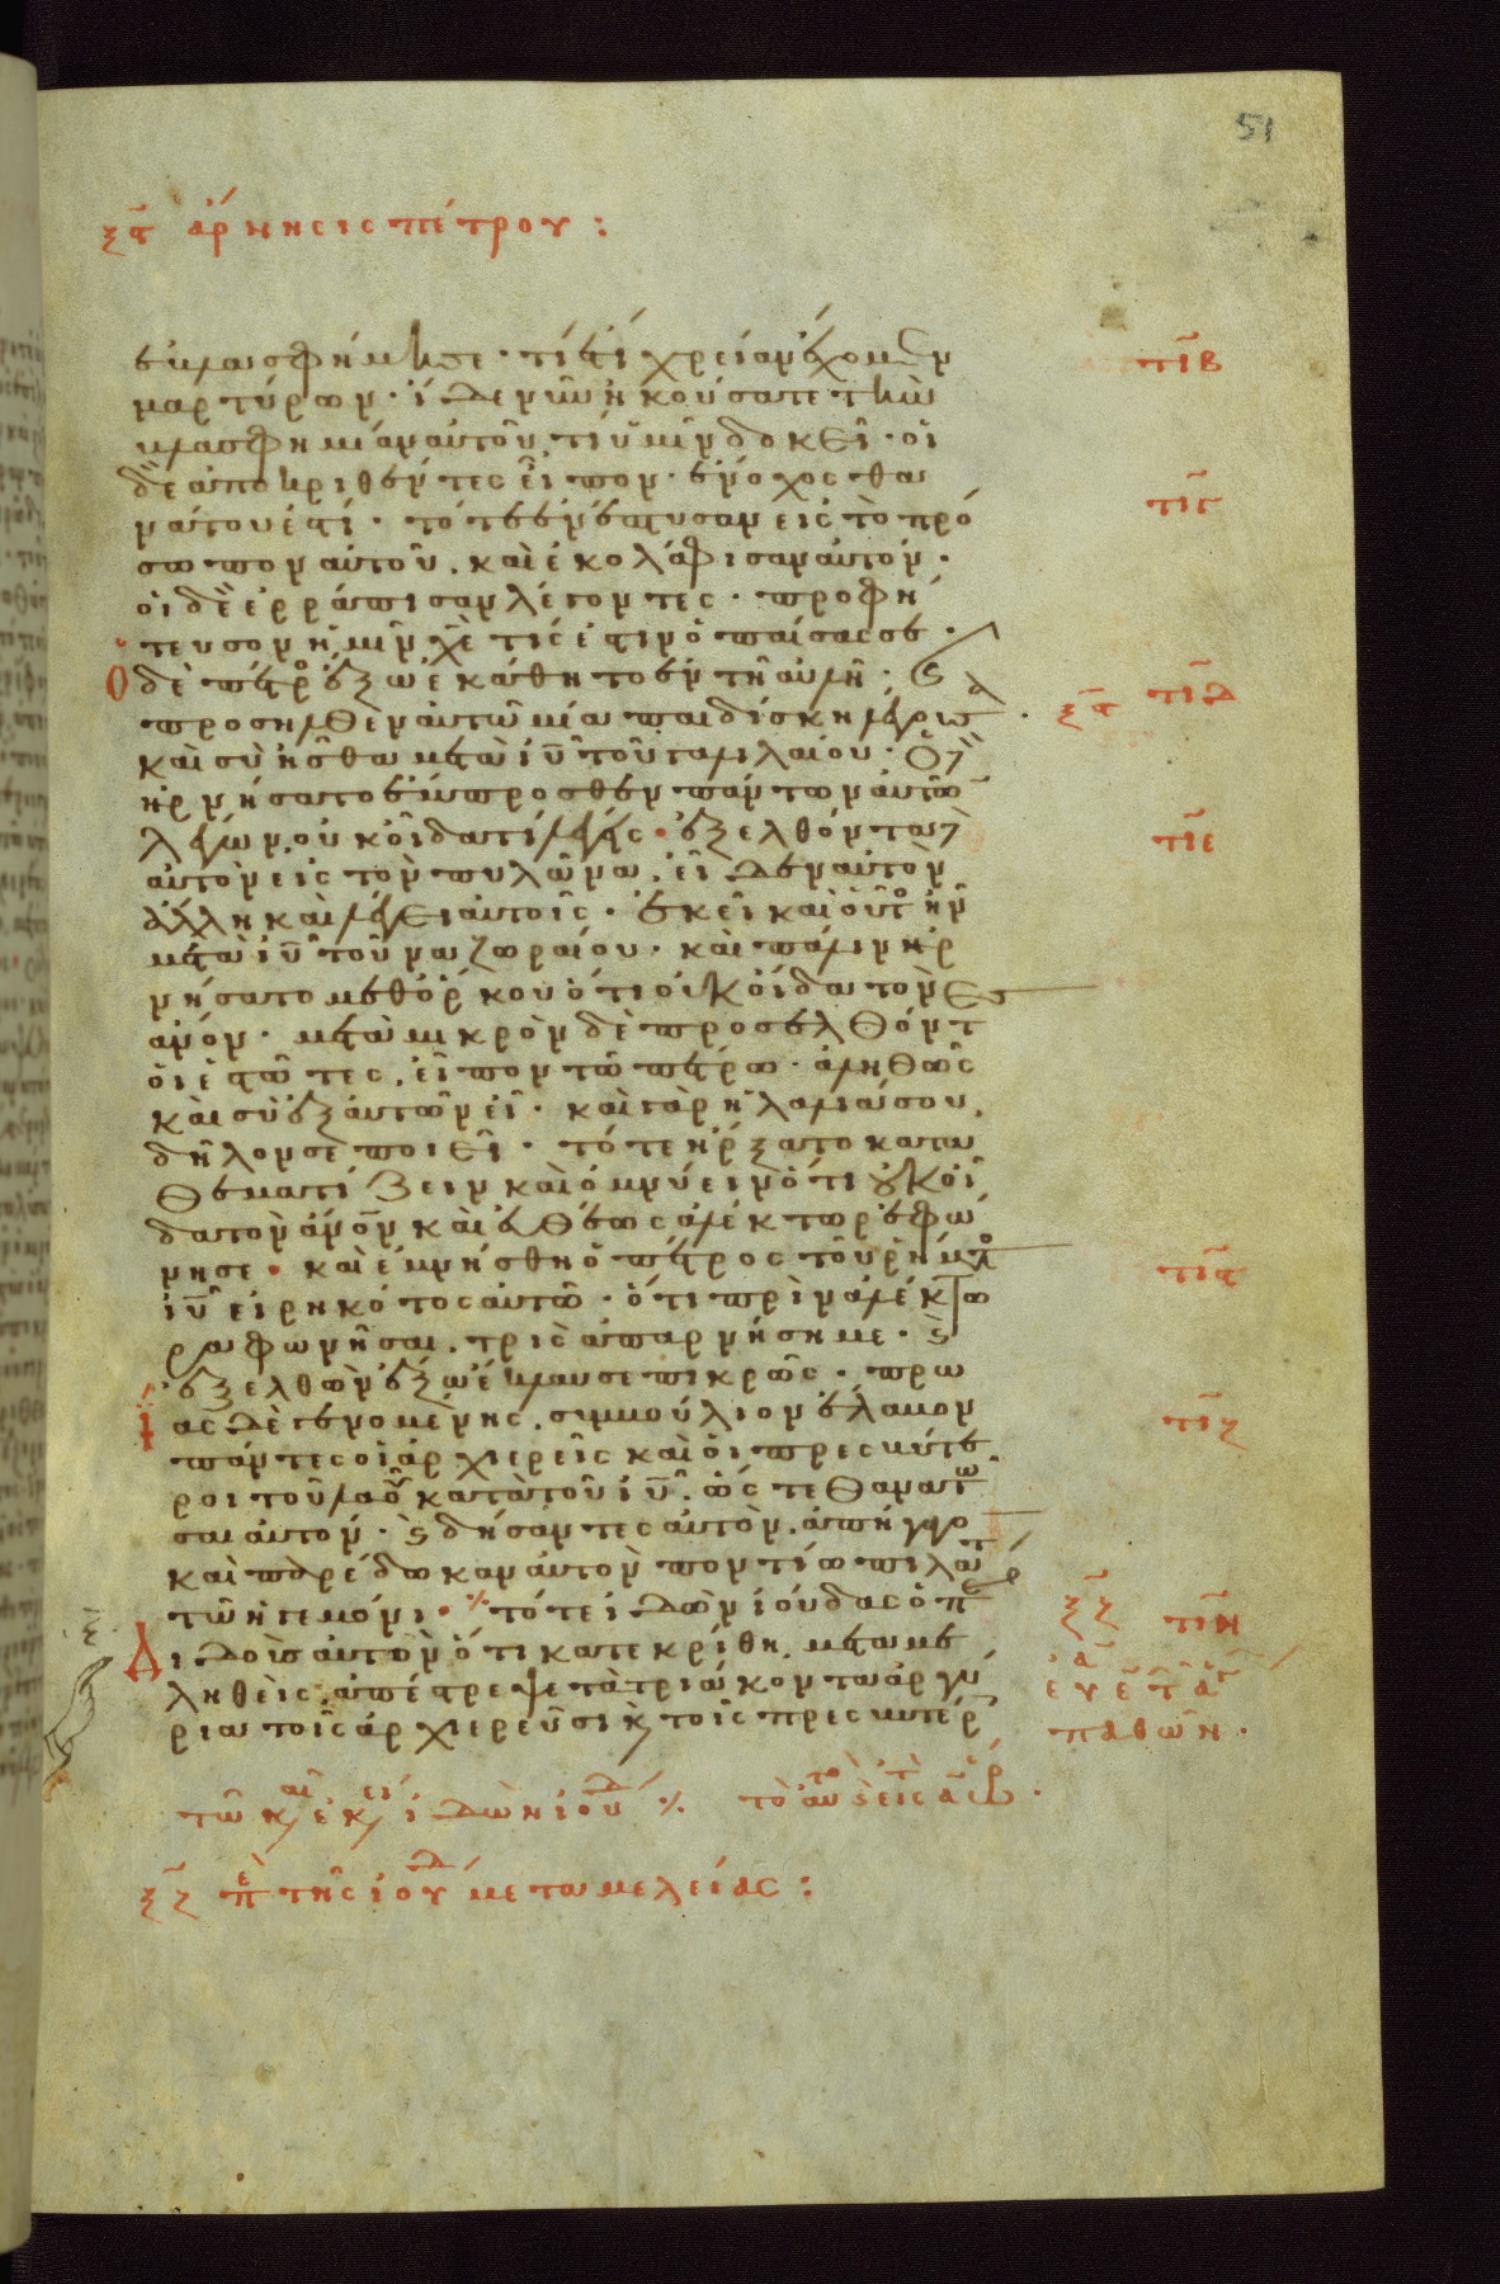 51
ξα ἄρνησις πέτρου:
ἐβλασφήμησε· τί ἔτι χρείαν ἔχομεν
μαρτύρων· ἴδε νῦν ἠκούσατε τὴν
βλασφημίαν αὐτοῦ τί ὑμῖν δοκεῖ· οἱ
δὲ ἀποκριθέντες εἶπον· ἔνοχος θα
νάτου ἐστί· τότε ἐνέπτυσαν εἰς τὸ πρό
σωπον αὐτοῦ. καὶ ἐκολάφισαν αὐτόν·
οἱ δὲ ἐρράπισαν λέγοντες· προφή
τευσον ἡμῖν χε τίς ἐστιν ὁ παίσας σε·
Ὁ δὲ πέτρος ἔξω ἐκάθητο ἐν τῇ αὐλῇ·
προσῆλθεν αὐτῶ μία παιδίσκη λέγουσ
καὶ σὺ ἦσθα μετὰ ιυ τοῦ γαλιλαίου· ὁ δὲ
ἠρνήσατο ἔμπροσθεν πάντων αὐτῶ
λέγων. οὐκ οἶδα τί λέγεις· ἐξελθόντα δὲ
αὐτὸν εἰς τὸν πυλῶνα. εἶδεν αὐτὸν
ἄλλη καὶ λέγει αὐτοῖς· ἐκεῖ καὶ οὗτος ἦν
μετὰ ιυ τοῦ ναζωραίου· καὶ πάλιν ἠρ
νήσατο μεθ ὅρκου ὅτι οὐκ οἶδα τὸν
ανον· μετὰ μικρὸν δὲ προσελθόντ
οἱ ἑστῶτες. εἶπον τῶ πέτρω· ἀληθῶς
καὶ σὺ ἐξ αὐτῶν εἶ· καὶ γὰρ ἡ λαλιά σου
δῆλόν σε ποιεῖ· τότε ἤρξατο κατα
θεματίζειν καὶ ὀμνύειν ὅτι οὐκ οἶ
δα τὸν ανον καὶ εὐθέως ἀλέκτωρ ἐφώ
νησε· καὶ ἐμνήσθη ὁ πέτρος τοῦ ῥήματος
ιυ εἰρηκότος αὐτῶ· ὅτι πρὶν ἀλέκτο
ρα φωνῆσαι. τρὶς ἀπαρνήσῃ με· καὶ
ἐξελθὼν ἔξω ἔκλαυσε πικρῶς· πρωΐ
ας δὲ γενομένης. συμβούλιον ἔλαβον
πάντες οἱ ἀρχιερεῖς καὶ οἱ πρεσβύτε
ροι τοῦ λαοῦ κατὰ τοῦ ιυ. ὥστε θανατῶ
σαι αὐτόν· καὶ δήσαντες αὐτὸν. ἀπήγαγον
καὶ παρέδωκαν αὐτὸν ποντίω πιλάτ
τῶ ἡγεμόνι· τότε ἰδὼν ἰούδας ὁ π
διδοὺς αὐτὸν ὅτι κατεκρίθη. μεταμε
ληθεὶς ἀπέστρεψε τὰ τριάκοντα ἀργύ
ρια τοῖς ἀρχιερεῦσι καὶ τοῖς πρεσβυτέρ
τιβ
τιγ
ξα τιδ
τιε
τις
τιζ
ξζ τιη
παθῶν·
ξζ π τῆς ἰουδ μεταμελείας: